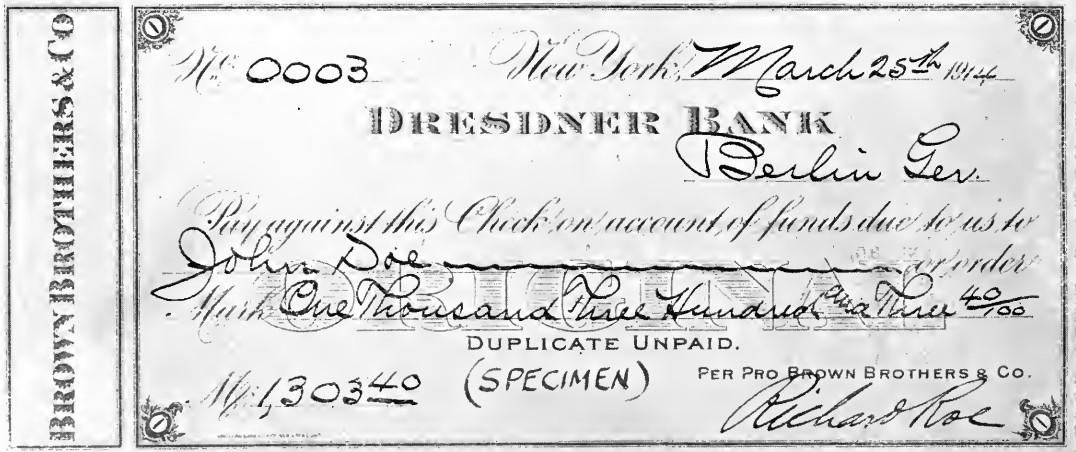 BROWN BROTHERS & CO
No. 0003 New York, March 25th 1914
DRESDNER BANK
Berlin Ger.
Pay against this Check on account of funds due to us to
John Doe or order
ORIGINAL
Mark One Thousand Three Hundred and Three 40/100
DUPLICATE UNPAID.
M. 1,303 40 (SPECIMEN) PER PRO BROWN BROTHERS & CO.
Richard Roe